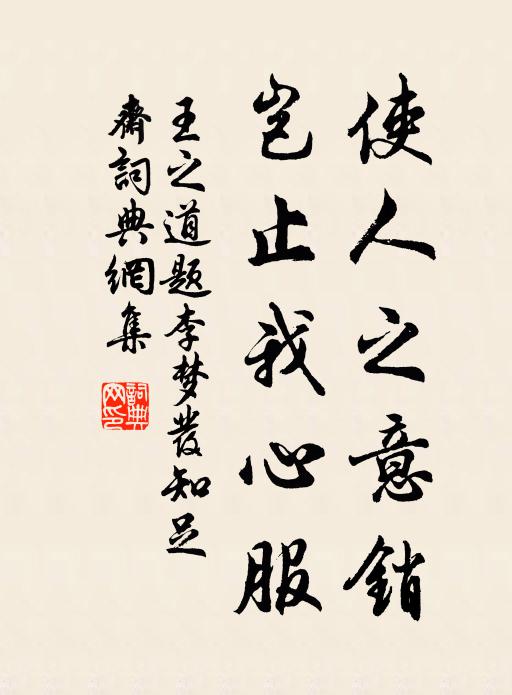 使人之意銷
豈止我心服
王之道題李梦發知足
齋詞典網集
詞典網印